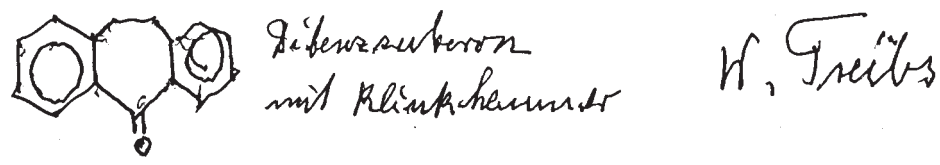 Dibenzsuberon
mit Klinkhammer
W. Treibs